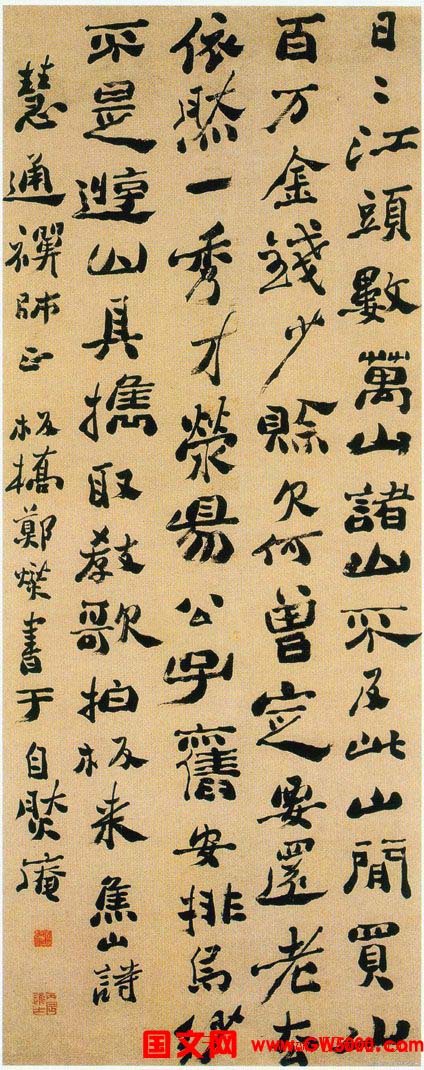 日〻江頭數萬山諸山不及此山閒買山
百万金錢少賒欠何曾定要還老去
依然一秀才滎昜公子舊安排烏紗
不是遊山具攜取教歌拍板来焦山詩
慧通禪師正 板橋鄭燮書于自然庵
国文网 www.GW5000.com